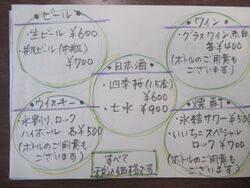 ビール
・生ビール ¥600
・瓶ビール(中瓶)
¥700
ワイン
・グラスワイン 赤白
各¥400
(ボトルのご用意も
ございます)
日本酒
・四季桜(1.5合)
¥600
・七水 ¥900
ウィスキー
・水割り、ロック
ハイボール 各¥500
(ボトルのご用意も
ございます)
焼酎
・氷結サワー ¥50
・いいちこスペシャル
ロック ¥700
(ボトルのご用意も
ございます)
すべて
税込価格です